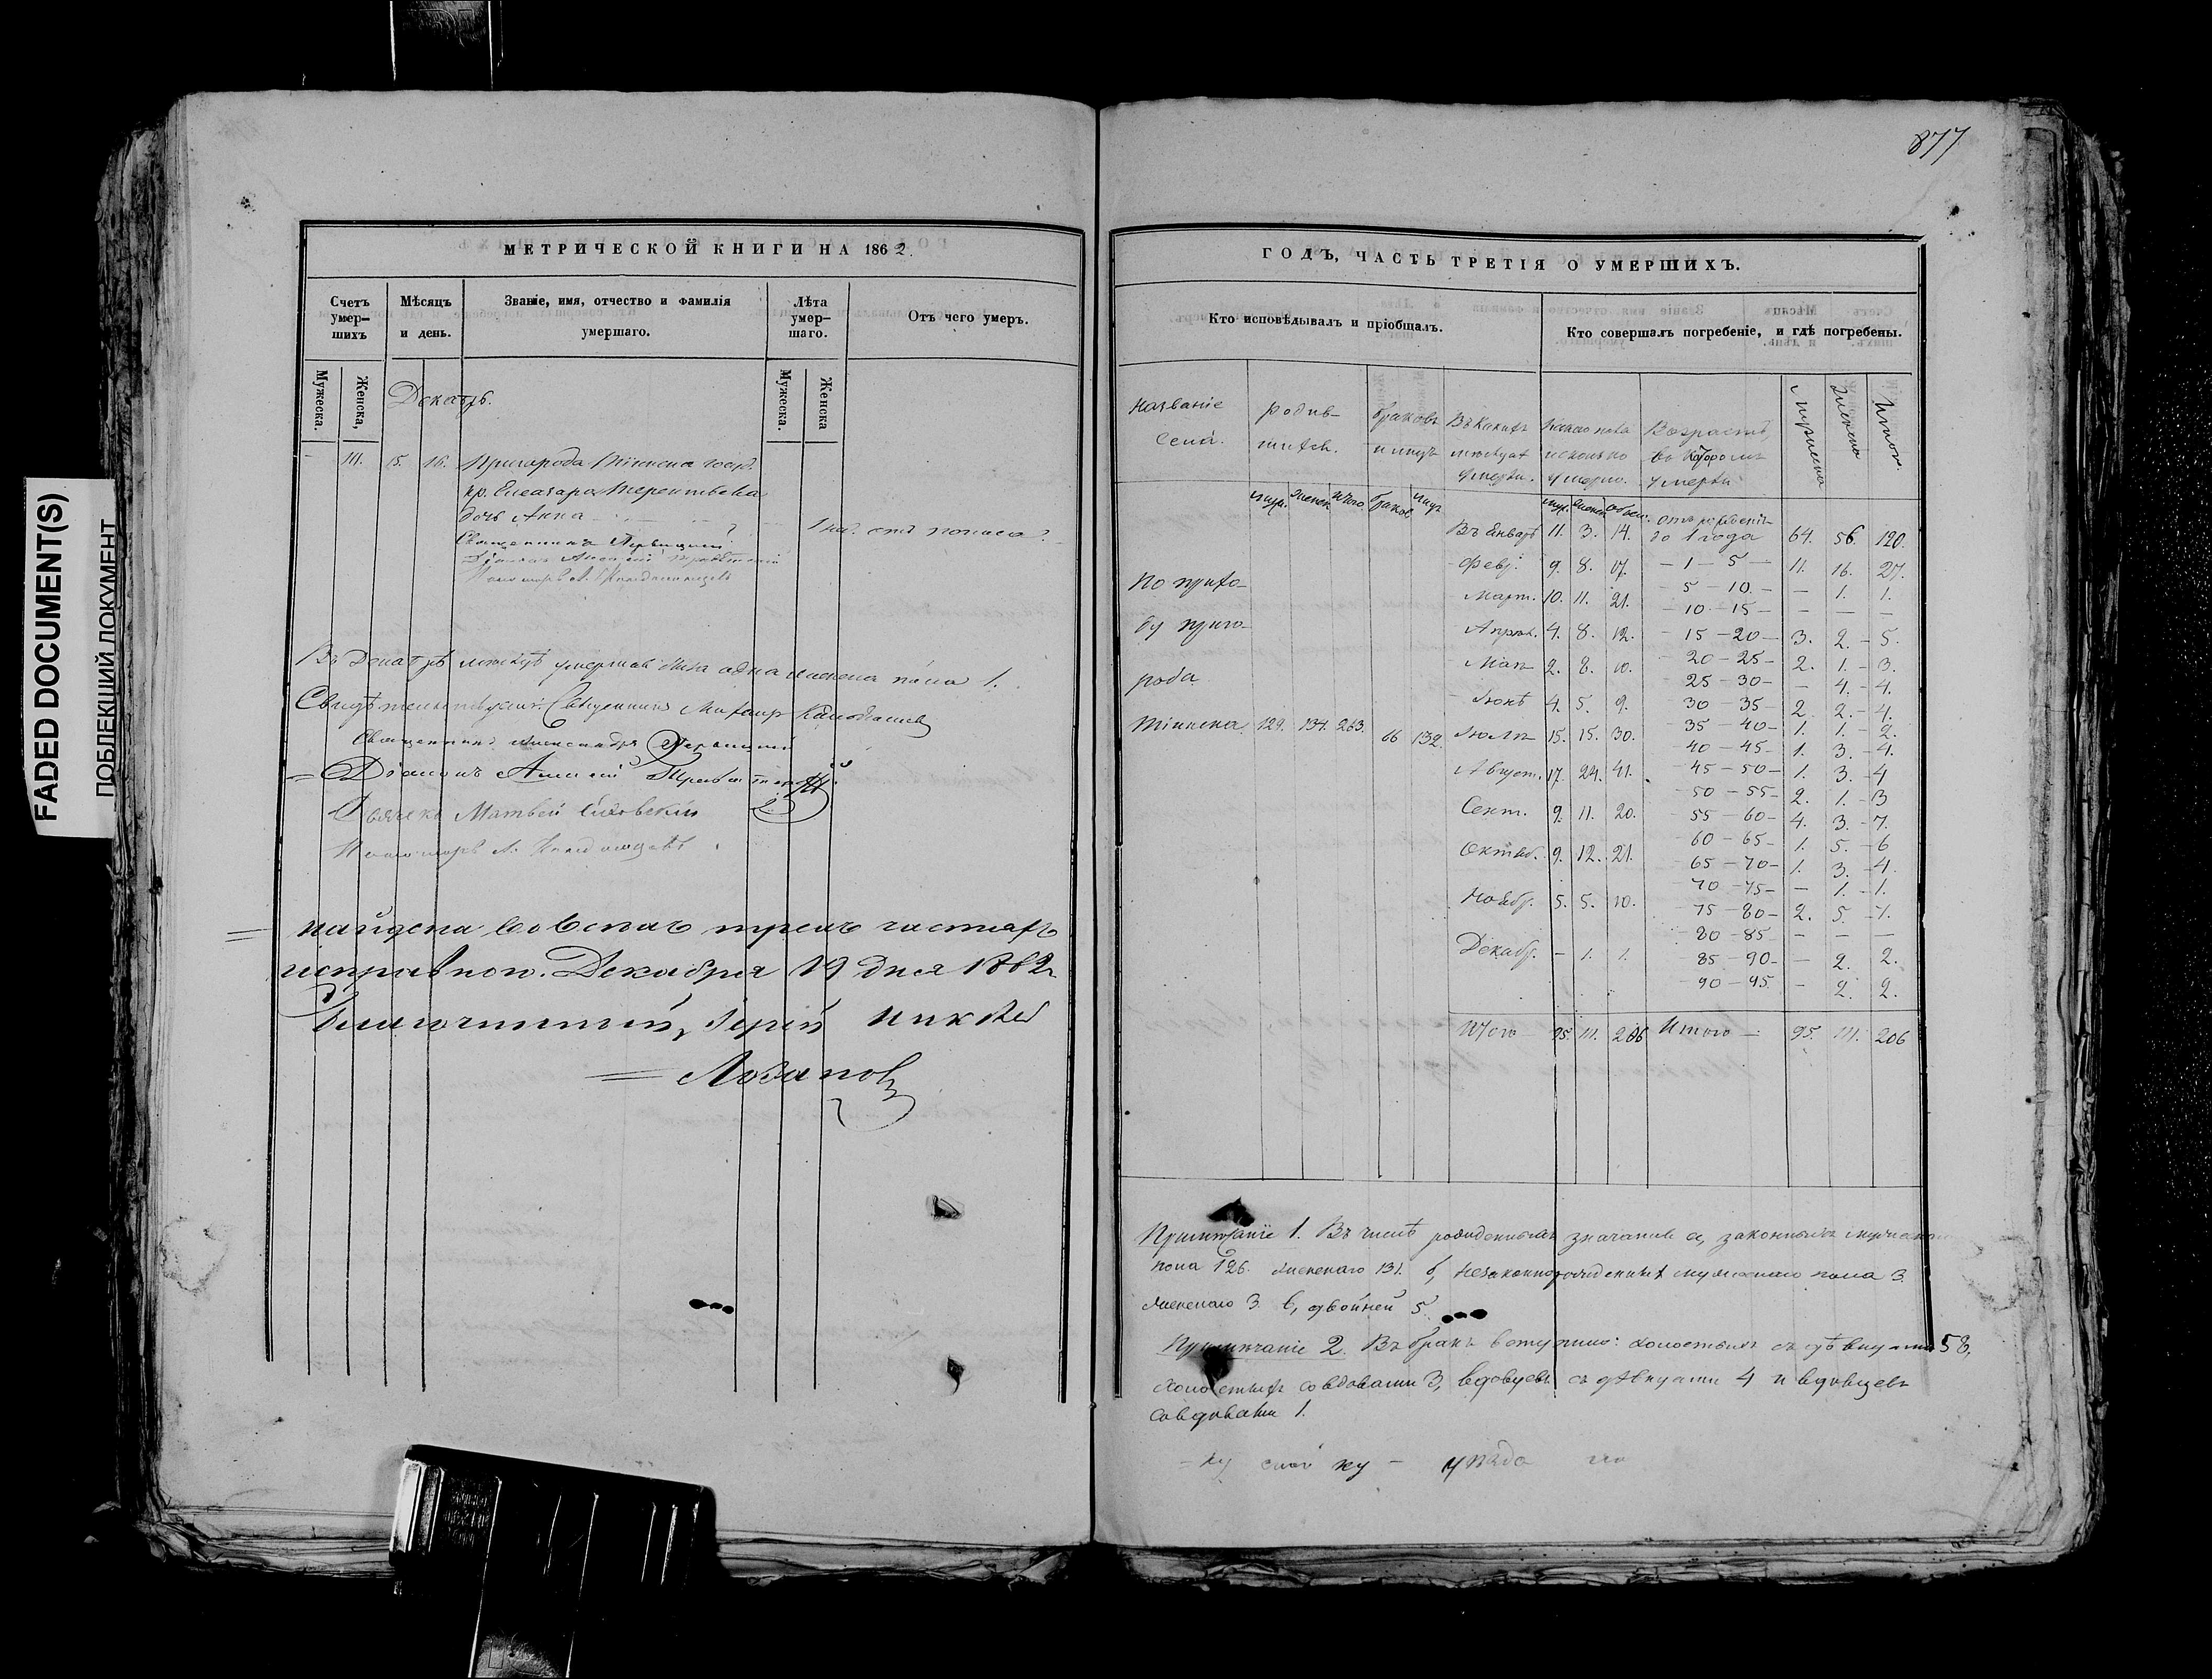 877
FADED DOCUMENT(S)
ПОБЛЕКШИЙ ДОКУМЕНТ
МЕТРИЧЕСКОЙ КНИГИ НА 1862.
Счетъ умер-шихъ
Мѣсяцъ и день.
Званіе, имя, отчество и фамилія умершаго.
Лѣта умер-шаго.
Отъ чего умеръ.
Мужеска.
Женска,
Мужеска.
Женска
Декабрь.
111. 15. 16. Пригорода Тіинска
кр. Елеазара Терентьева
дочь Анна 1 отъ поноса.
Священникъ
Въ Декабрѣ мѣсяцѣ умершая была одна женска пола 1.
Священникъ
Священникъ Александръ
Діаконъ
Дьячекъ Матвей
Пономарь А.
найдена во всехъ трехъ частяхъ
исправною. Декабря 19 дня 1862 г.
Благочинный, Іерей
Лобановъ
ГОДЪ, ЧАСТЬ ТРЕТІЯ О УМЕРШИХЪ.
Кто исповѣдывалъ и пріобщалъ.
Кто совершалъ погребеніе, и гдѣ погребены.
Названіе села.
родив-шихся.
браковъ и лицъ
Въ какихъ мѣсяцахъ умерли.
умерло.
Возрастъ въ которомъ умерли
мужеска
женска
Итого.
муж. женск. итого браков лицъ
муж. женск. обоег.
По прихо-
ду приго-
рода
Тіинска. 129. 134. 263. 66 132.
Въ Январѣ 11. 3. 14.
Февр. 9. 8. 17.
Март. 10. 11. 21.
Апрѣл. 4. 8. 12.
Маѣ 2. 8. 10.
Іюнѣ 4. 5. 9.
Іюлѣ 15. 15. 30.
Август. 17. 24. 41.
Сент. 9. 11. 20.
Октяб. 9. 12. 21.
Ноябр. 5. 5. 10.
Декабр. — 1. 1.
Итого 95. 111. 206
отъ рожденія до 1 года 64. 56. 120.
— 1 — 5 — 11. 16. 27.
5 — 10. — — 1. 1.
— 10 — 15 — — — —
— 15 — 20 — 3. 2. — 5.
— 20 — 25 — 2. 1. — 3.
— 25 — 30 — — 4. — 4.
30 — 35 — 2. 2. — 4.
35 — 40 — 1. 1. — 2.
— 40 — 45 — 1. 3. — 4.
— 45 — 50 — 1. 3. — 4
— 50 — 55 — 2. 1. — 3
— 55 — 60 — 4. 3. — 7.
60 — 65 — 1. 5. — 6
— 65 — 70 — 1. 3. — 4.
— 70 — 75 — — 1. — 1.
— 75 — 80 — 2. 5. — 7.
— 80 — 85 — — —
— 85 — 90 — — 2. 2.
— 90 — 95. — 2. 2.
Итого — 95. 111. 206
Примѣчаніе 1. Въ числѣ рожденныхъ значатся а, законныхъ мужескаго
пола 126. женскаго 131. б, незаконнорожденныхъ мужескаго пола 3.
женскаго 3. в, двойней 5.
Примѣчаніе 2. Въ бракъ вступило: холостыхъ съ дѣвицами 58,
холостыхъ со вдовами 3, вдовцевъ съ дѣвицами 4 и вдовцевъ
со вдовами 1.